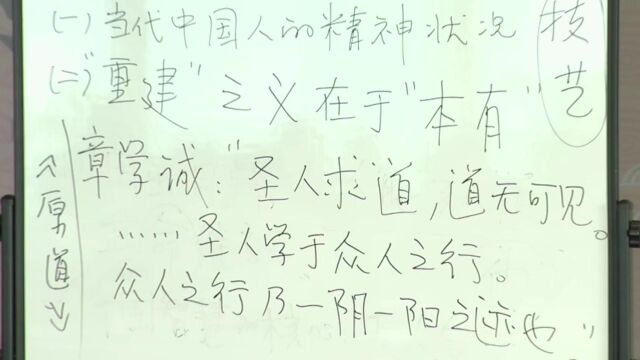 (一)当代中国人的精神状况
(二)"重建"之义在于"本有"
技艺
章学诚:"圣人求道,道无可见。
……圣人学于众人之行。
众人之行乃一阴一阳之迹也"
《原道》